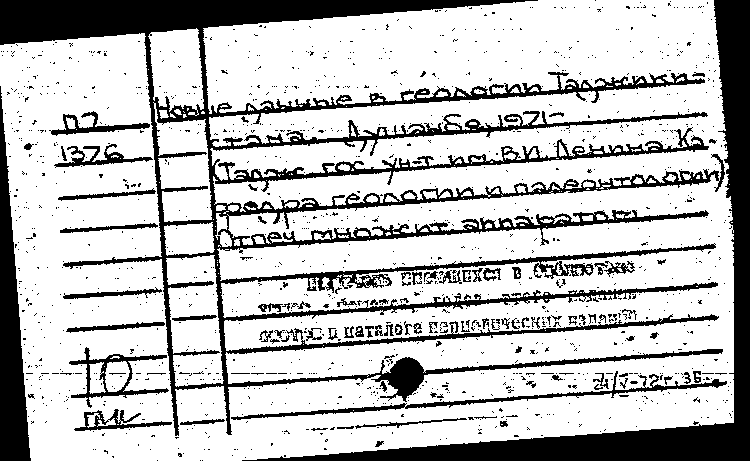 П7
1376
Новые данные в геологии Таджики-
стана. Душанбе, 1971-
(Тадж. гос. ун-т им. В.И. Ленина. Ка-
федра геологии и палеонтологии)
Отпеч множит. аппаратом
имеющихся в библиотеке
номеров, годов этого издания
смотри в каталоге периодических изданий
10
24/V-72 г. 36